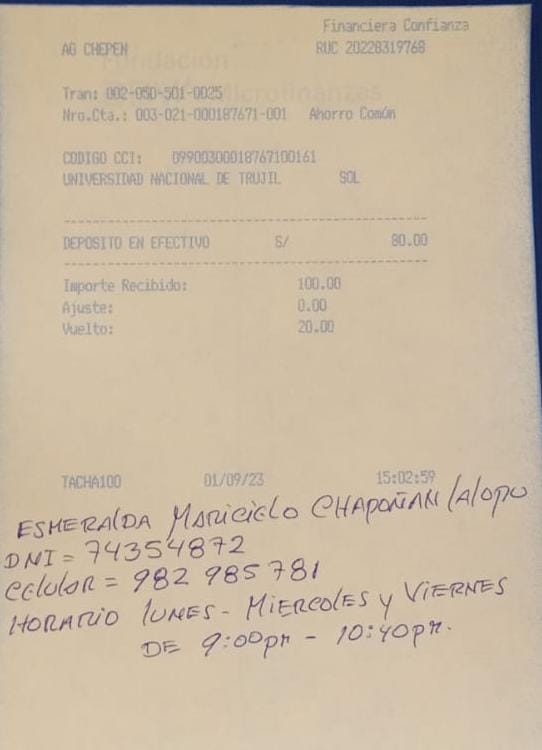 Financiera Confianza
AG CHEPEN RUC 20228319768
Fundación
Microfinanzas
Tran: 002-050-501-0025
Nro.Cta.: 003-021-000187671-001 Ahorro Común
CODIGO CCI: 09900300018767100161
UNIVERSIDAD NACIONAL DE TRUJIL SOL
DEPOSITO EN EFECTIVO S/ 80.00
Importe Recibido: 100.00
Ajuste: 0.00
Vuelto: 20.00
TACHA100 01/09/23 15:02:59
ESMERALDA MARICIELO CHAPOÑAN
DNI = 74354872
Celular = 982 985 781
HORARIO lUNES - MIERCOLES y VIERNES
DE 9:00pm - 10:40pm.